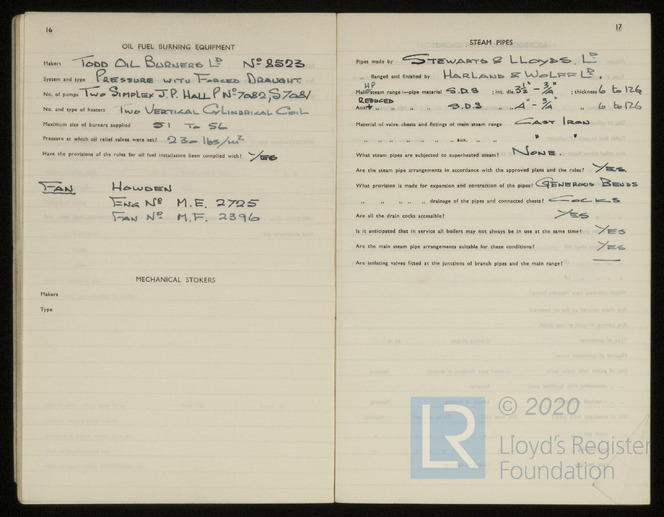 16
OIL FUEL BURNING EQUIPMENT
Makers TODD OIL BURNERS LD No 8523
System and type PRESSURE WITH FORCED DRAUGHT
No. of pumps TWO SIMPLEX J.P. HALL P No 7082, S 7081
No. and type of heaters TWO VERTICAL CYLINDRICAL COIL
Maximum size of burners supplied 51 TO 56
Pressure at which oil relief valves were set? 230 lbs/in2
Have the provisions of the rules for oil fuel installation been complied with? YES
FAN HOWDEN
ENG No M.E. 2725
FAN No M.F. 2396
MECHANICAL STOKERS
Makers
Type
17
STEAM PIPES
Pipes made by STEWARTS & LLOYDS, LD
" flanged and finished by HARLAND & WOLFF LD.
HP
steam range:—pipe material S.D.S ; int. ; thickness 6 to 12G
REDUCED
" " " S.D.S " 6 to 12G
Material of valve chests and fittings of main steam range CAST IRON
" " " " " aux. " " " "
What steam pipes are subjected to superheated steam? NONE.
Are the steam pipe arrangements in accordance with the approved plans and the rules? YES
What provision is made for expansion and contraction of the pipes? GENEROUS BENDS
" " " " drainage of the pipes and connected chests? COCKS
Are all the drain cocks accessible? YES
Is it anticipated that in service all boilers may not always be in use at the same time? YES
Are the main steam pipe arrangements suitable for these conditions? YES
Are isolating valves fitted at the junctions of branch pipes and the main range? —
LR © 2020
Lloyd's Register
Foundation